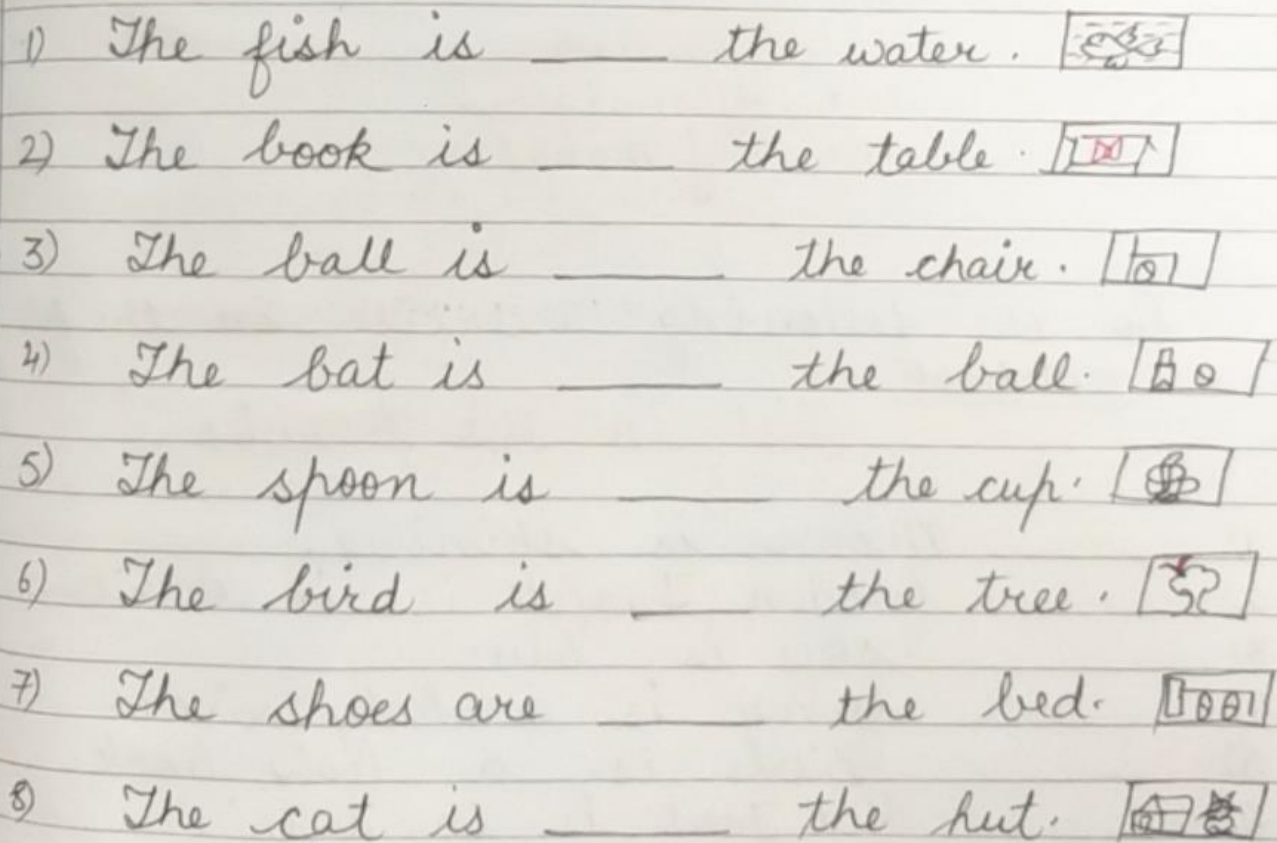 1) The fish is ____ the water.
2) The book is ____ the table.
3) The ball is ____ the chair.
4) The bat is ____ the ball.
5) The spoon is ____ the cup.
6) The bird is ____ the tree.
7) The shoes are ____ the bed.
8) The cat is ____ the hut.